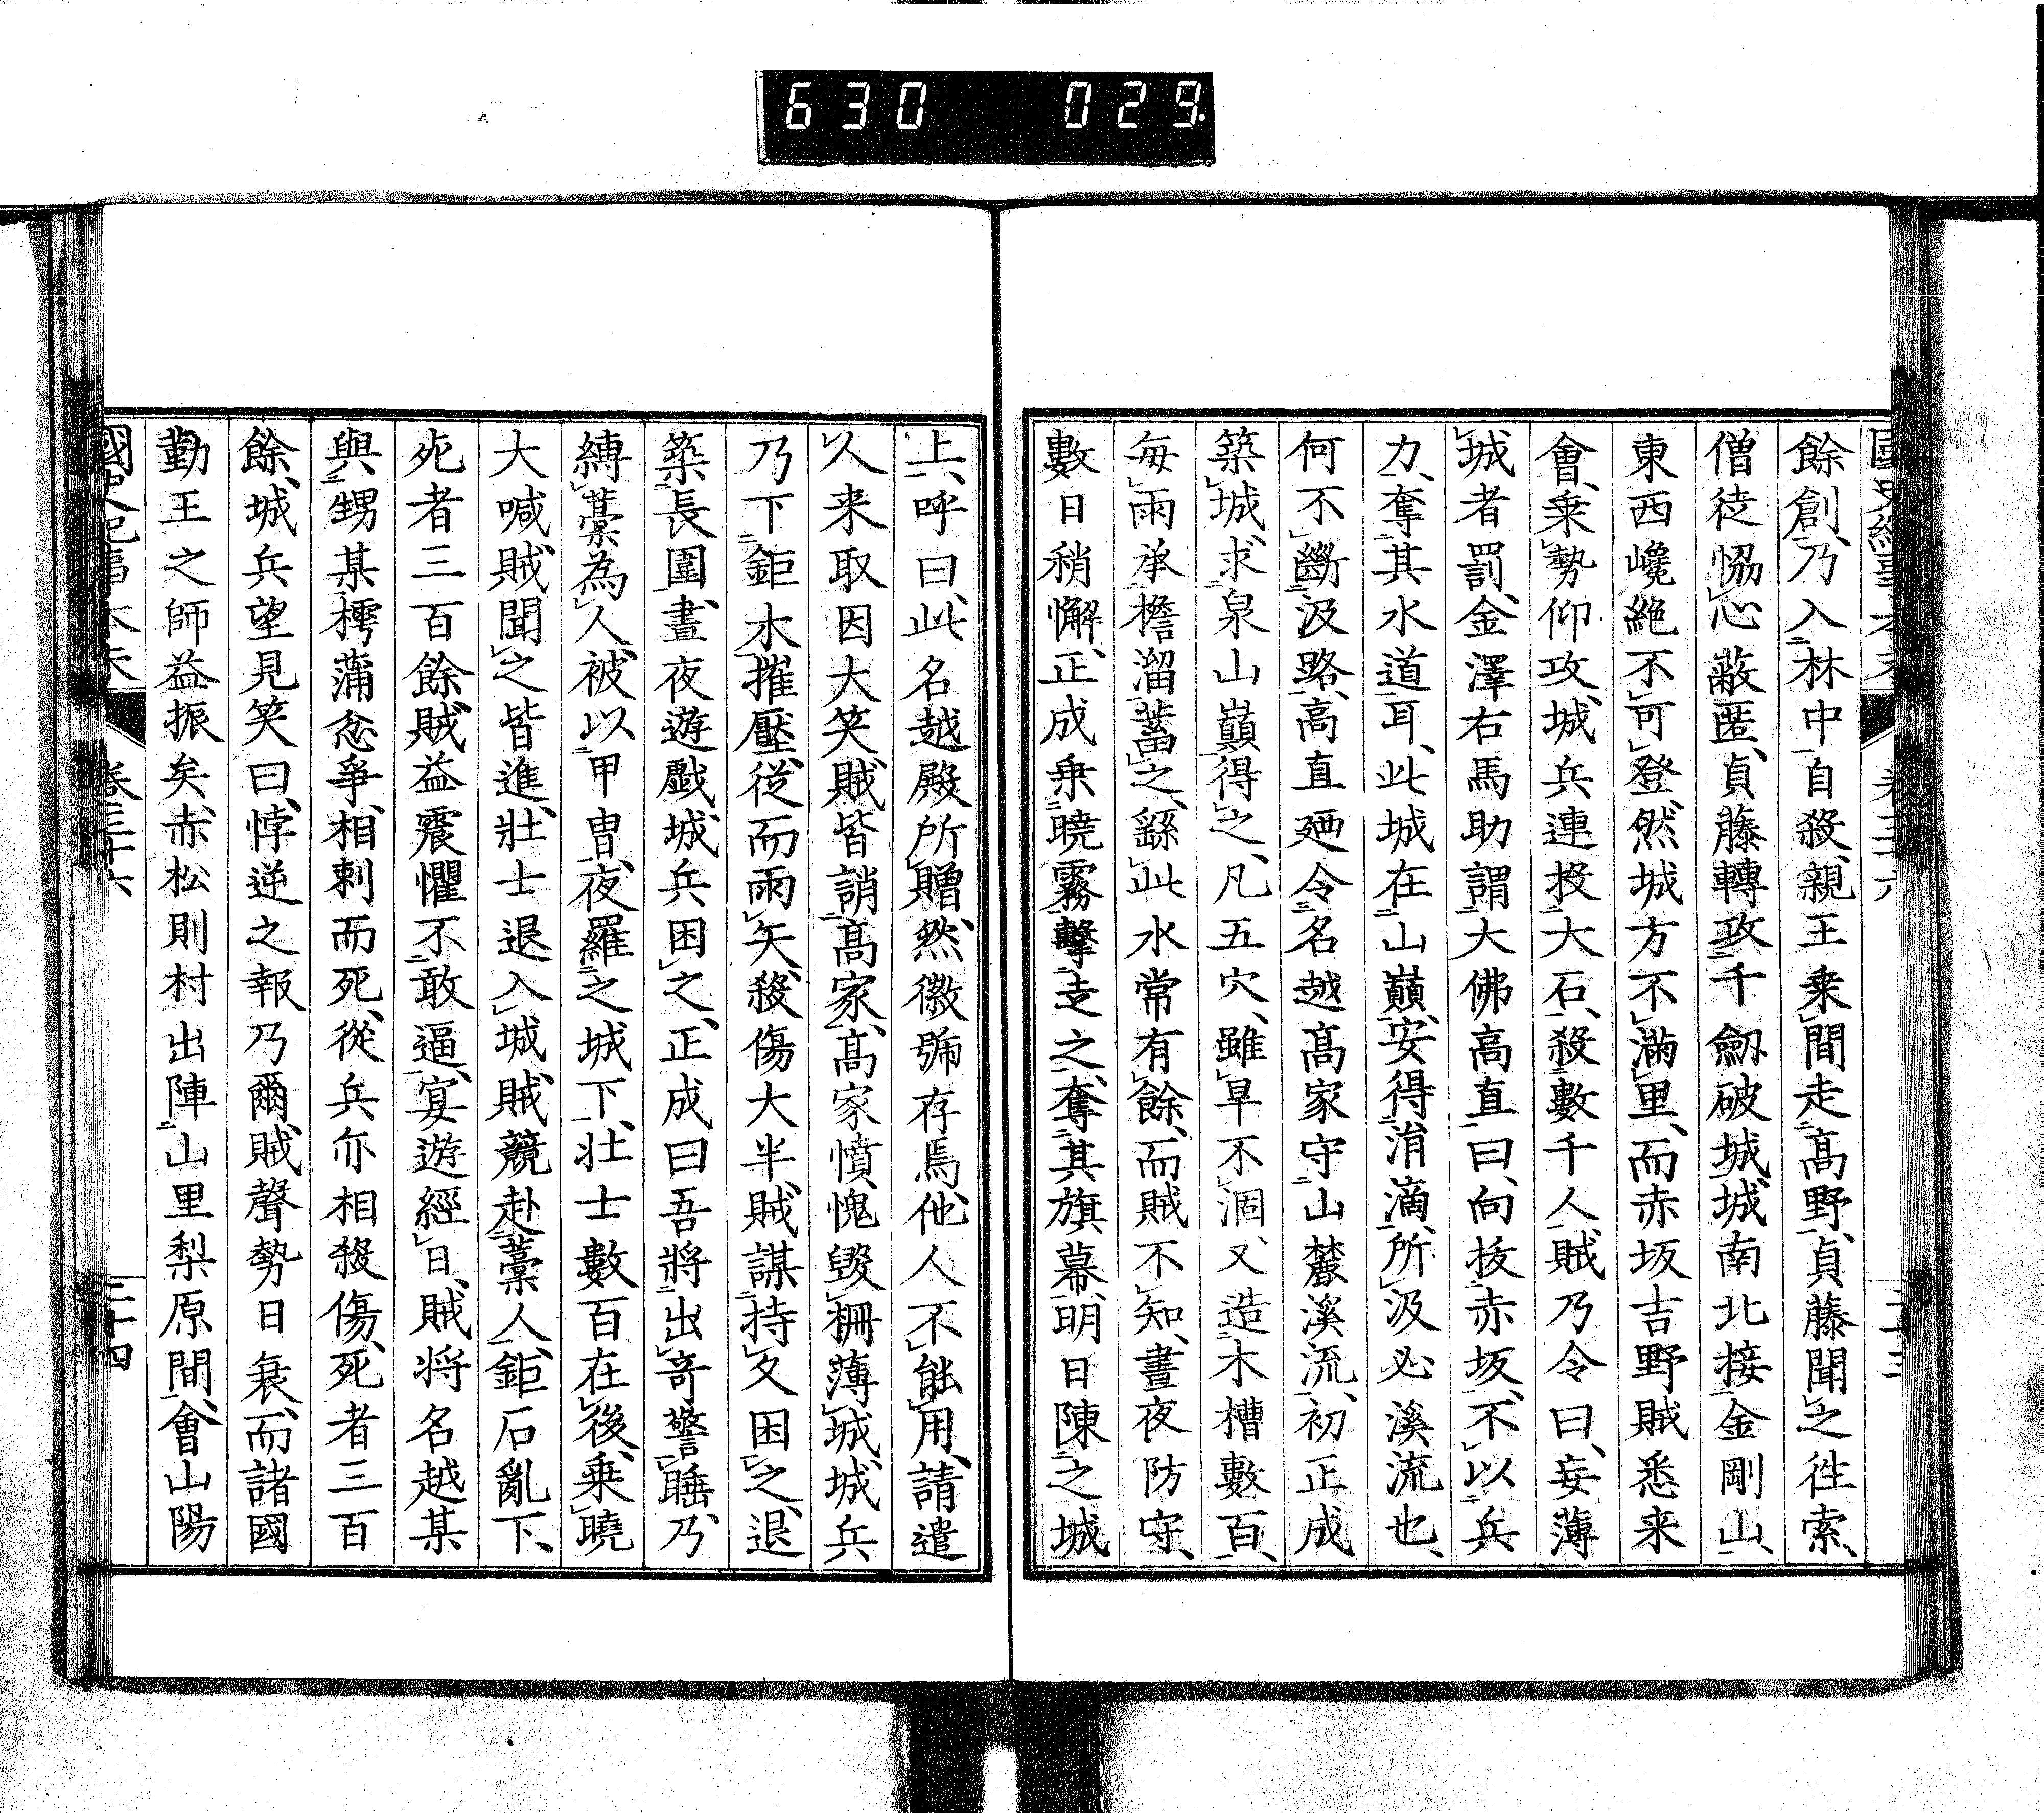 630 029
國史紀事本末 卷三十六 三十三
餘創、乃入林中自殺、親王乗間走高野、貞藤聞之往索、
僧徒恊心蔽匿、貞藤轉攻千劔破城、城南北接金剛山、
東西巉絶不可登、然城方不滿里、而赤坂吉野賊悉来
會、乗勢仰攻、城兵連投大石、殺數千人、賊乃令曰、妄薄
城者罰、金澤右馬助謂大佛高直曰、向抜赤坂、不以兵
力、奪其水道耳、此城在山巓、安得涓滴、所汲必溪流也、
何不斷汲路、高直廼令名越髙家守山麓溪流、初正成
築城、求泉山巓得之、凡五穴、雖旱不涸、又造木槽數百、
毎雨承檐溜蓄之、繇此水常有餘、而賊不知、晝夜防守、
數日稍懈、正成乗曉霧擊走之、奪其旗幕、明日陳之城
上、呼曰、此名越殿所贈、然徽號存焉、他人不能用、請遣
人来取因大笑、賊皆誚髙家、髙家憤愧毀柵薄城、城兵
乃下鉅木摧壓、從而雨矢、殺傷大半、賊謀持久困之、退
築長圍、晝夜遊戯、城兵困之、正成曰吾將出奇警睡、乃
縛藁為人、被以甲冑、夜羅之城下、壯士數百在後、乗曉
大喊、賊聞之皆進、壯士退入城、賊競赴藁人、鉅石亂下、
死者三百餘、賊益震懼不敢逼、宴遊經日、賊将名越某
與甥某、樗蒲忿爭、相刺而死、從兵亦相殺傷、死者三百
餘、城兵望見笑曰、悖逆之報乃爾、賊聲勢日衰、而諸國
勤王之師益振矣、赤松則村出陣山里梨原間、會山陽
國史紀事本末 卷三十六 三十四